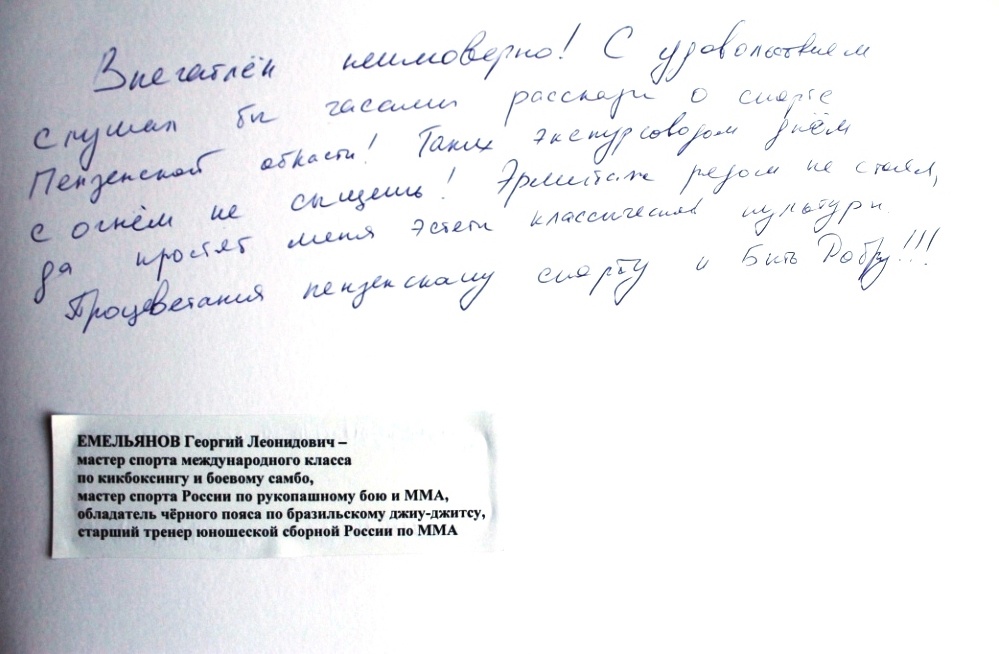 Впечатлён неимоверно! С удовольствием
слушал бы часами рассказы о спорте
Пензенской области! Таких экскурсоводов днём
с огнём не сыщешь! Эрмитаж рядом не стоял,
да простят меня эстеты классической культуры.
Процветания пензенскому спорту и Быть Добру!!!
ЕМЕЛЬЯНОВ Георгий Леонидович –
мастер спорта международного класса
по кикбоксингу и боевому самбо,
мастер спорта России по рукопашному бою и ММА,
обладатель чёрного пояса по бразильскому джиу-джитсу,
старший тренер юношеской сборной России по ММА